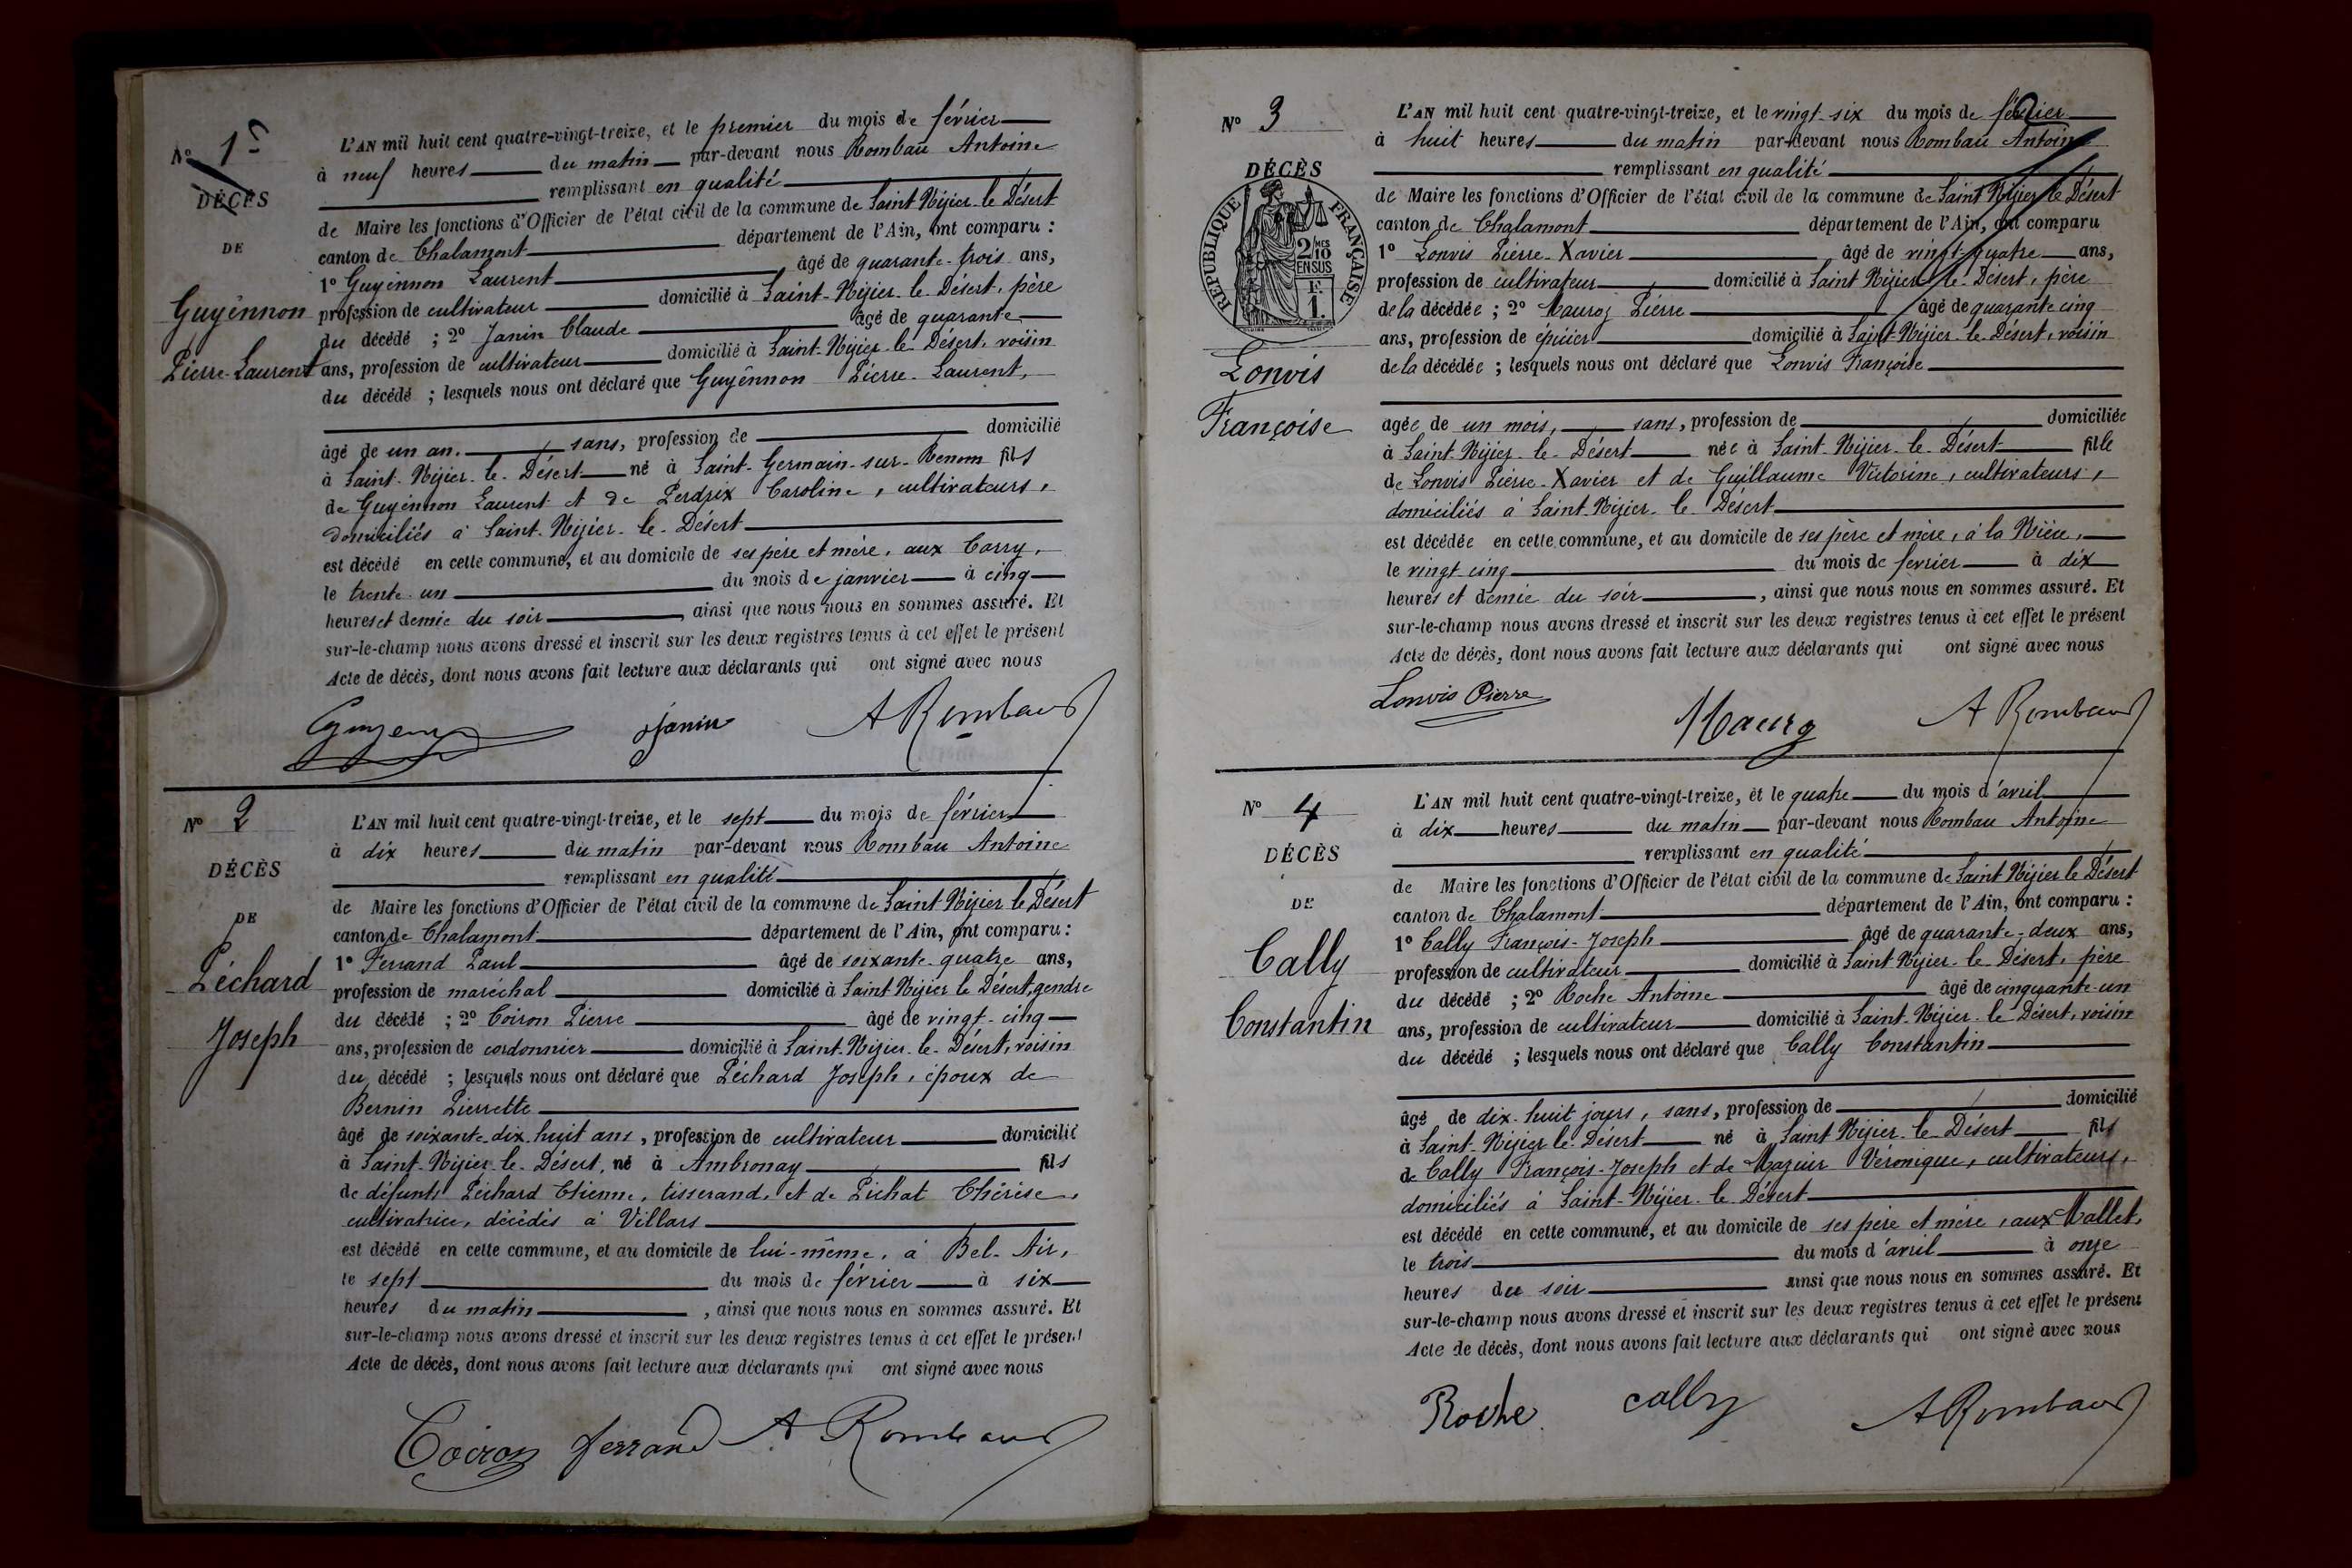 N° 1er
DÉCÈS
DE
Guyênnon
Pierre-Laurent
L'AN mil huit cent quatre-vingt-treize, et le premier du mois de février
à neuf heures du matin par-devant nous Rombau Antoine
remplissant en qualité
de Maire les fonctions d'Officier de l'état civil de la commune de Saint Nizier-le Désert
canton de Chalamont département de l'Ain, ont comparu :
1° Guyénnon Laurent âgé de quarante-trois ans,
profession de cultivateur domicilié à Saint-Nizier-le-Désert, père
du décédé ; 2° Janin Claude âgé de quarante
ans, profession de cultivateur domicilié à Saint-Nizier-le Désert, voisin
du décédé ; lesquels nous ont déclaré que Guyênnon Pierre-Laurent,
âgé de un an, sans, profession de domicilié
à Saint-Nizier-le-Désert né à Saint-Germain-sur-Renom fils
de Guyénnon Laurent et de Perdrix Caroline, cultivateurs,
domiciliés à Saint-Nizier-le-Désert
est décédé en cette commune, et au domicile de ses père et mère, aux Carry,
le trente-un du mois de janvier à cinq
heures et demie du soir, ainsi que nous nous en sommes assuré. Et
sur-le-champ nous avons dressé et inscrit sur les deux registres tenus à cet effet le présent
Acte de décès, dont nous avons fait lecture aux déclarants qui ont signé avec nous
Janin A Rombaud
N° 2
DÉCÈS
DE
Péchard
Joseph
L'AN mil huit cent quatre-vingt-treize, et le sept du mois de février
à dix heures du matin par-devant nous Rombau Antoine
remplissant en qualité
de Maire les fonctions d'Officier de l'état civil de la commune de Saint-Nizier le Désert
canton de Chalamont département de l'Ain, ont comparu :
1° Ferrand Paul âgé de soixante-quatre ans,
profession de maréchal domicilié à Saint Nizier le Désert, gendre
du décédé ; 2° Coiron Pierre âgé de vingt-cinq
ans, profession de cordonnier domicilié à Saint-Nizier-le-Désert, voisin
du décédé ; lesquels nous ont déclaré que Péchard Joseph, époux de
Bernin Pierrette
âgé de soixante-dix-huit ans, profession de cultivateur domicilié
à Saint-Nizier-le-Désert, né à Ambronay fils
de défunts Péchard Etienne, tisserand, et de Pichat Thérèse,
cultivatrice, décédés à Villars
est décédé en cette commune, et au domicile de lui-même, à Bel-Air,
le sept du mois de février à six
heures du matin, ainsi que nous nous en sommes assuré. Et
sur-le-champ nous avons dressé et inscrit sur les deux registres tenus à cet effet le présent
Acte de décès, dont nous avons fait lecture aux déclarants qui ont signé avec nous
Coiron ferrand A Rombaud
N° 3
DÉCÈS
REPUBLIQUE FRANÇAISE
2 MES
10
EN SUS
F.
1.
Lonvis
Françoise
L'AN mil huit cent quatre-vingt-treize, et le vingt-six du mois de février
à huit heures du matin par-devant nous Rombau Antoine
remplissant en qualité
de Maire les fonctions d'Officier de l'état civil de la commune de Saint Nizier le Désert
canton de Chalamont département de l'Ain, ont comparu
1° Lonvis Pierre-Xavier âgé de vingt-quatre ans,
profession de cultivateur domicilié à Saint Nizier-le-Désert, père
de la décédée ; 2° Pierre âgé de quarante cinq
ans, profession de épicier domicilié à Saint-Nizier-le-Désert, voisin
de la décédée ; lesquels nous ont déclaré que Lonvis Françoise
agée de un mois, sans, profession de domiciliée
à Saint-Nizier-le-Désert née à Saint-Nizier-le-Désert fille
de Lonvis Pierre-Xavier et de Guillaume Victorine, cultivateurs,
domiciliés à Saint-Nizier-le Désert
est décédée en cette commune, et au domicile de ses père et mère, à la
le vingt-cinq du mois de fevrier à dix
heures et demie du soir, ainsi que nous nous en sommes assuré. Et
sur-le-champ nous avons dressé et inscrit sur les deux registres tenus à cet effet le présent
Acte de décès, dont nous avons fait lecture aux déclarants qui ont signé avec nous
Lonvis Pierre A Rombaud
N° 4
DÉCÈS
DE
Cally
Constantin
L'AN mil huit cent quatre-vingt-treize, et le quatre du mois d'avril
à dix heures du matin par-devant nous Rombau Antoine
remplissant en qualité
de Maire les fonctions d'Officier de l'état civil de la commune de Saint Nizier le Désert
canton de Chalamont département de l'Ain, ont comparu :
1° Cally François-Joseph âgé de quarante-deux ans,
profession de cultivateur domicilié à Saint Nizier-le-Désert, père
du décédé ; 2° Roche Antoine âgé de cinquante-un
ans, profession de cultivateur domicilié à Saint-Nizier-le Désert, voisin
du décédé ; lesquels nous ont déclaré que Cally Constantin
âgé de dix-huit jours, sans, profession de domicilié
à Saint-Nizier-le-Désert né à Saint Nizier-le-Désert fils
de Cally François-Joseph et de Mazuir Véronique, cultivateurs,
domiciliés à Saint-Nizier-le Désert
est décédé en cette commune, et au domicile de ses père et mère, aux Mallet,
le trois du mois d'avril à onze
heures du soir ainsi que nous nous en sommes assuré. Et
sur-le-champ nous avons dressé et inscrit sur les deux registres tenus à cet effet le présent
Acte de décès, dont nous avons fait lecture aux déclarants qui ont signé avec nous
Roche cally A Rombaud